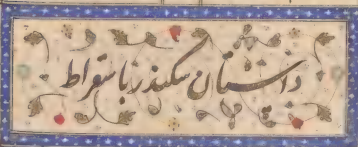 داستان سکندر با سقراط